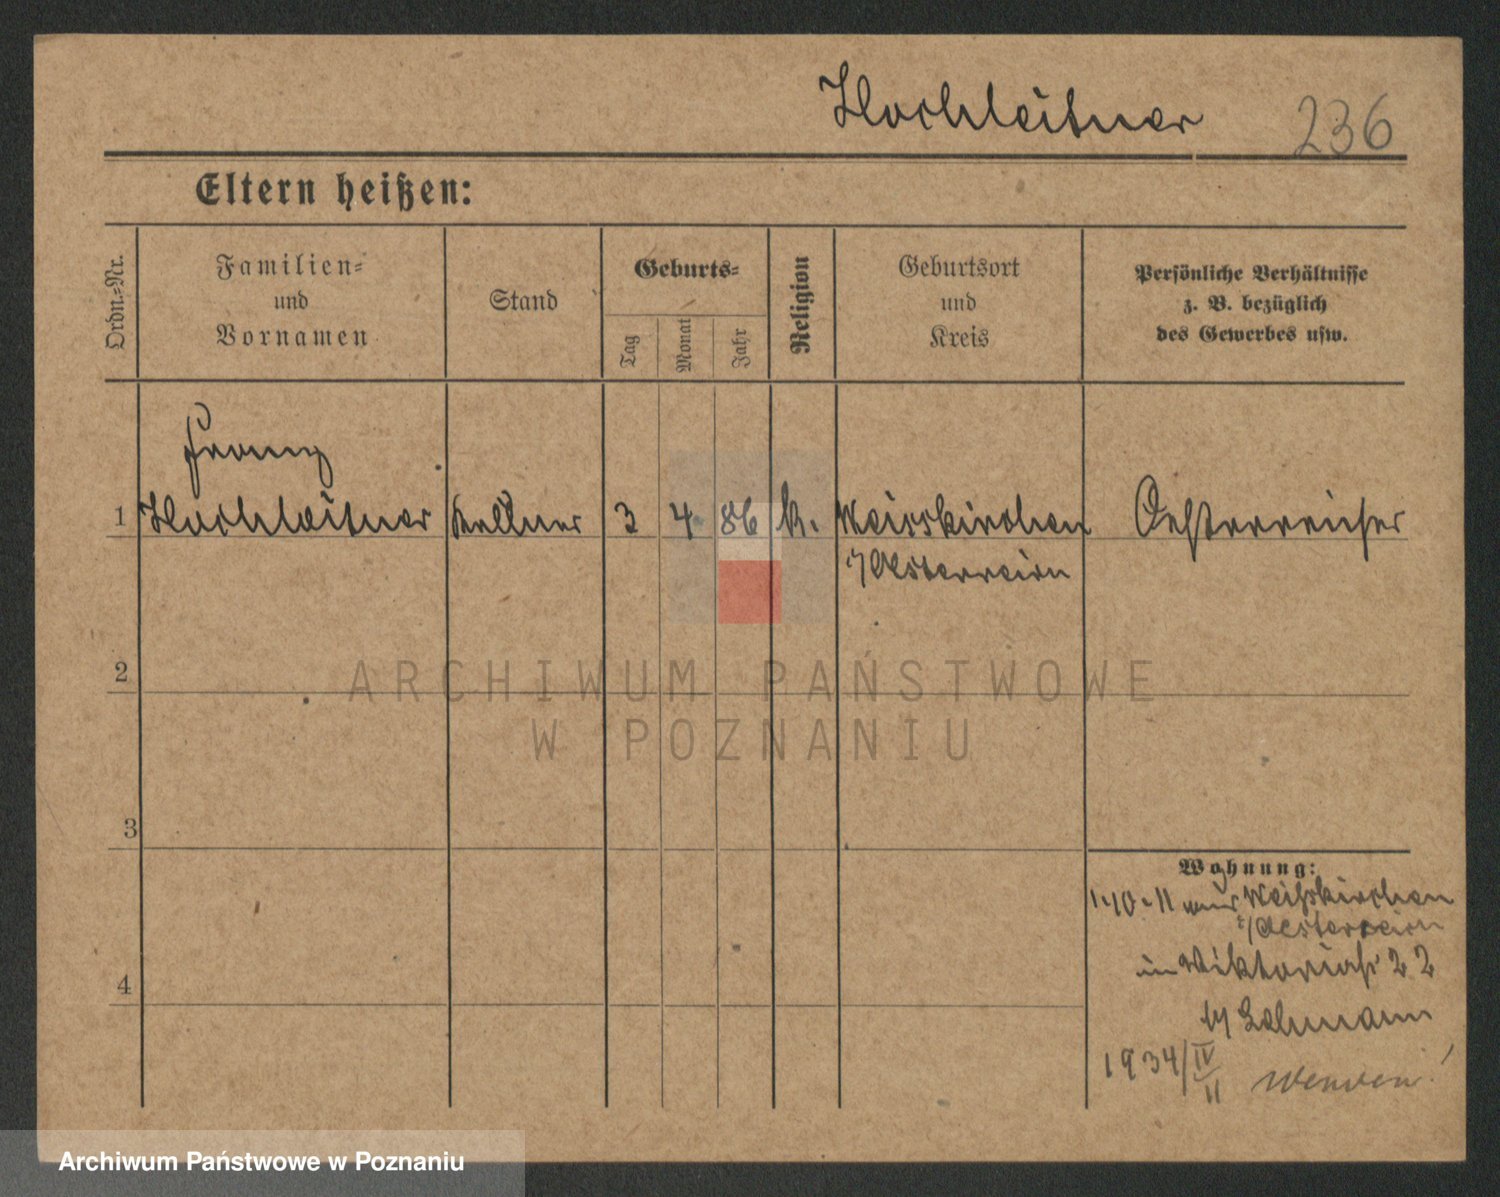 Hochleitner 236
Eltern heißen:
Ordn.-Nr.
Familien-
und
Vornamen
Stand
Geburts-
Tag
Monat
Jahr
Religion
Geburtsort
und
Kreis
Persönliche Verhältnisse
z. B. bezüglich
des Gewerbes usw.
Franz
1 Hochleitner Kellner 3 4 86 k. Weisskirchen Oesterreicher
i/Oesterreich
2
ARCHIWUM PAŃSTWOWE
W POZNANIU
3
Wohnung:
1.10.11 aus Weißkirchen
i/Oesterreich
in Viktoriastr 22
b/ Lehmann
4
1934/IV
11
wenden!
Archiwum Państwowe w Poznaniu